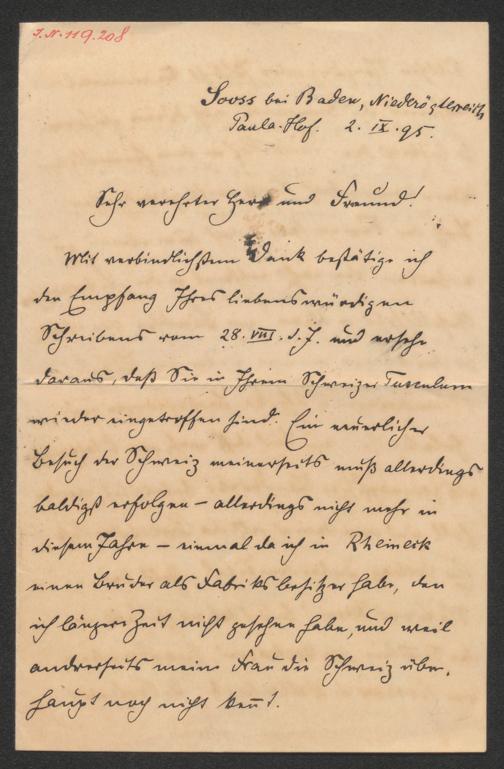 I.N. 119.208
Sooss bei Baden, Niederösterreich
Paula-Hof. 2. IX. 95.
Sehr verehrter Herr und Freund!
Mit verbindlichstem Dank bestätige ich
den Empfang Ihres liebenswürdigen
Schreibens vom 28. VIII. d. J. und ersehe
daraus, daß Sie in Ihrem Schweizer Tusculum
wieder eingetroffen sind. Ein neuerlicher
Besuch der Schweiz meinerseits muß allerdings
baldigst erfolgen – allerdings nicht mehr in
diesem Jahre – einmal da ich in Rheineck
einen Bruder als Fabriksbesitzer habe, den
ich längere Zeit nicht gesehen habe, und weil
andrerseits meine Frau die Schweiz über-
haupt noch nicht kennt.